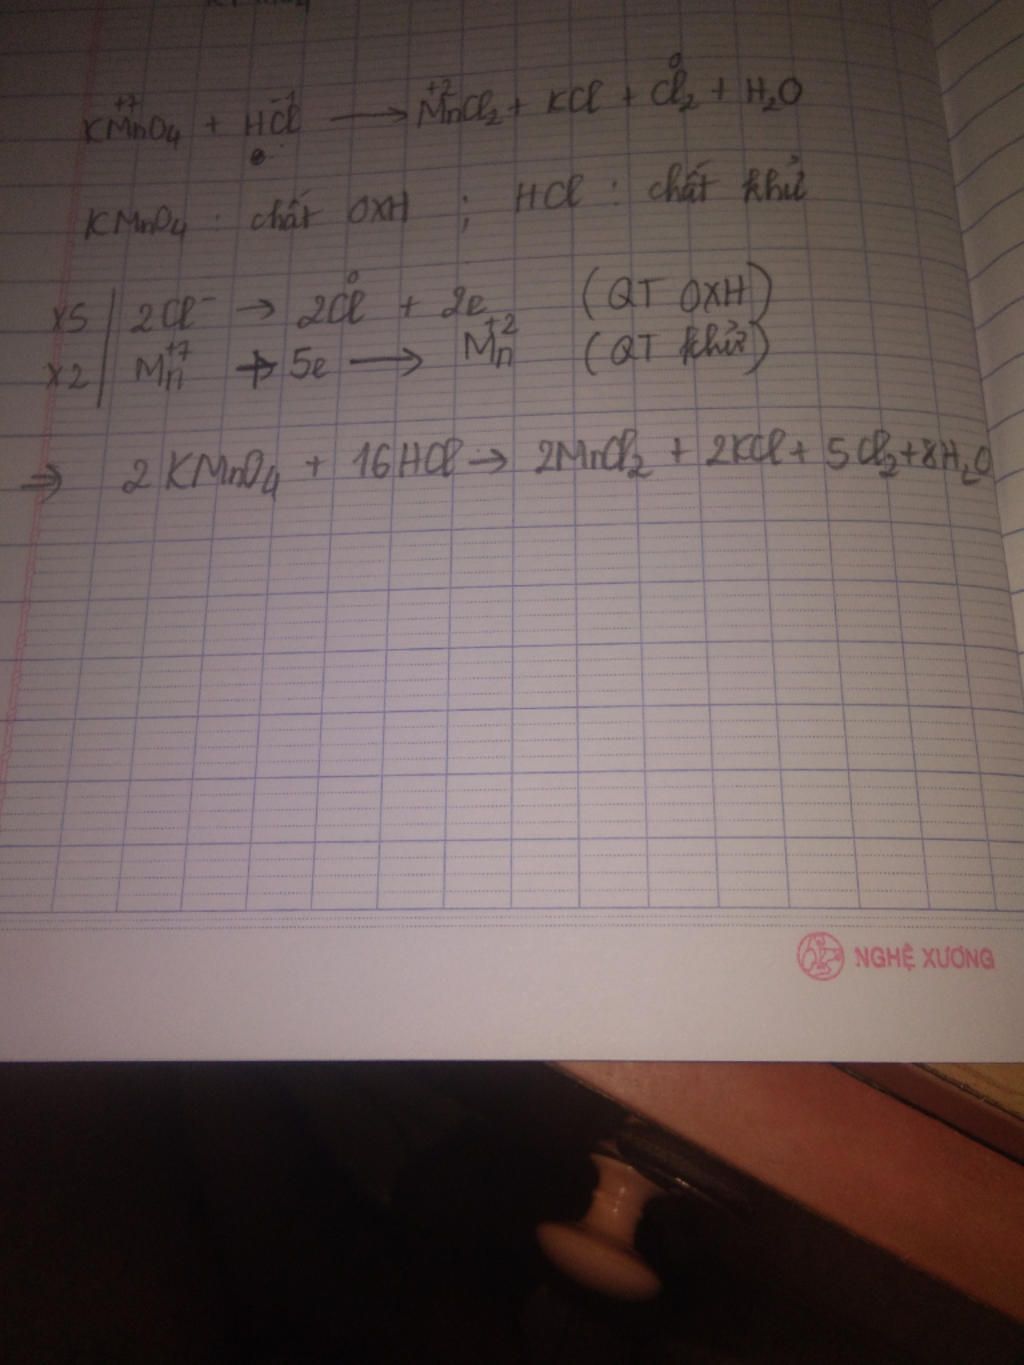 KMnO₄ + HCl → MnCl₂ + KCl + Cl₂ + H₂O
+7 -1 +2 0
KMnO₄ : chất OXH ; HCl : chất khử
x5 | 2Cl⁻ → 2Cl⁰ + 2e (QT OXH)
x2 | Mn⁺⁷ + 5e → Mn⁺² (QT khử)
⇒ 2KMnO₄ + 16HCl → 2MnCl₂ + 2KCl + 5Cl₂ + 8H₂O
NGHỆ XƯƠNG